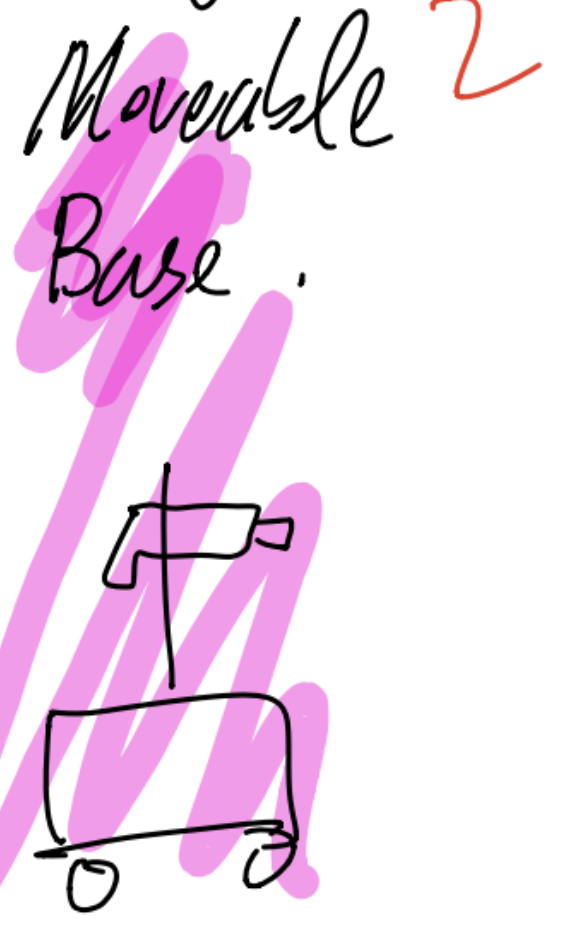 Moveable 2
Base.